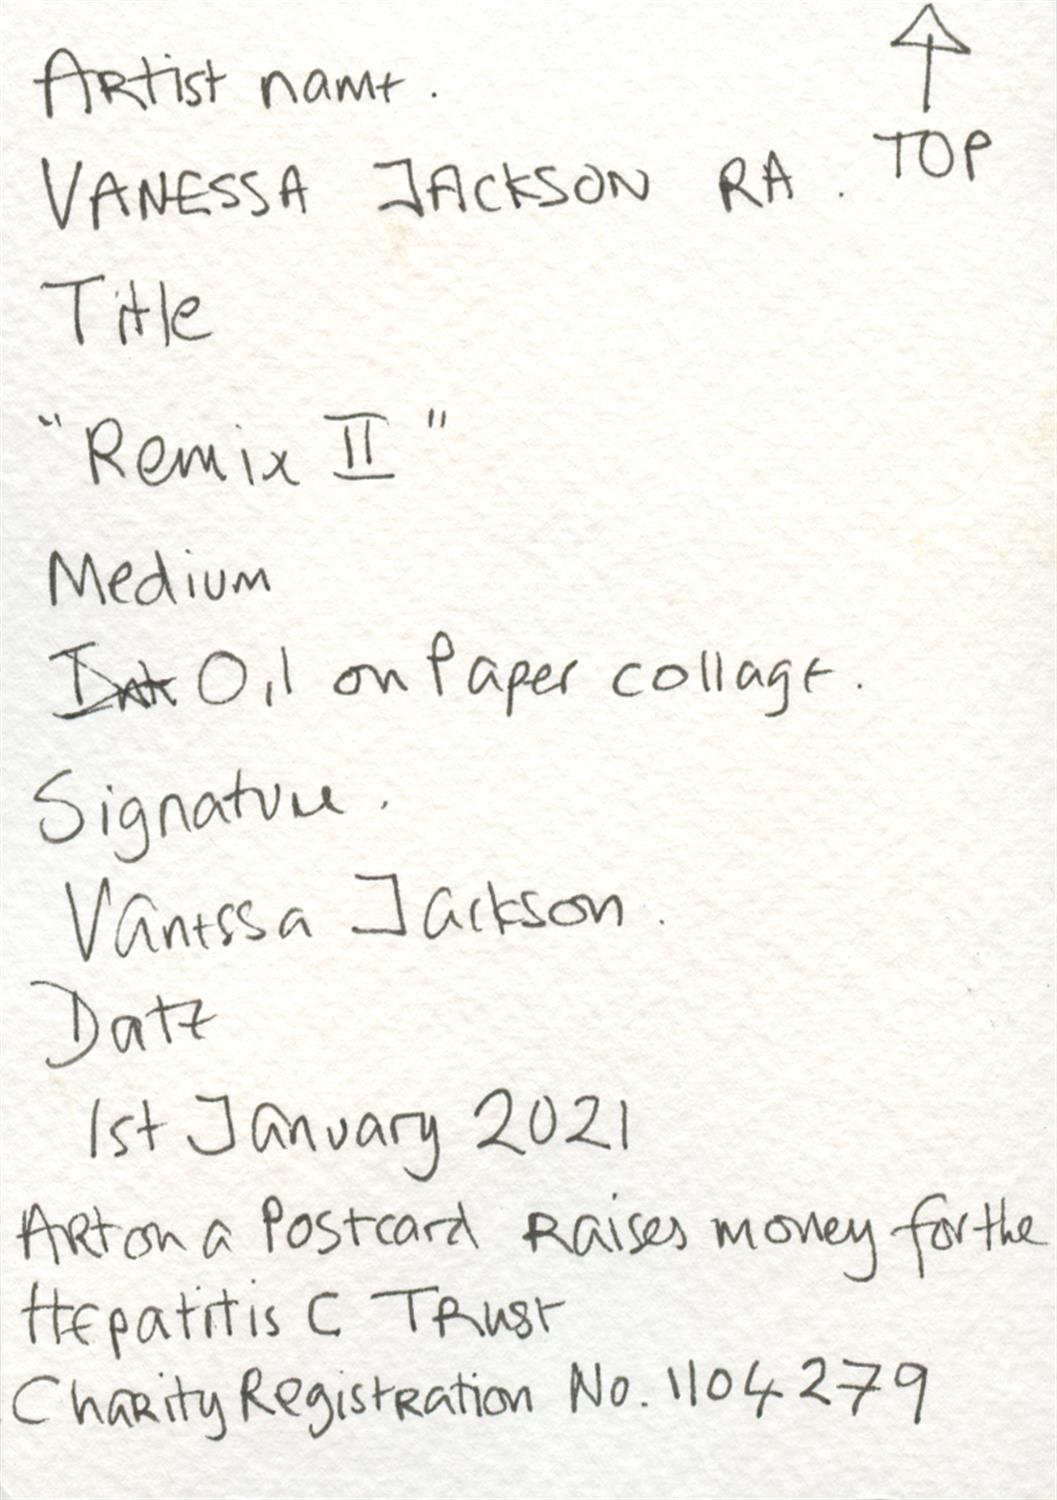 Artist name.
TOP
VANESSA JACKSON RA.
Title
"Remix II"
Medium
Ink Oil on Paper collage.
Signature.
Vanessa Jackson.
Date
1st January 2021
Art on a Postcard raises money for the
Hepatitis C Trust
Charity Registration No. 1104279